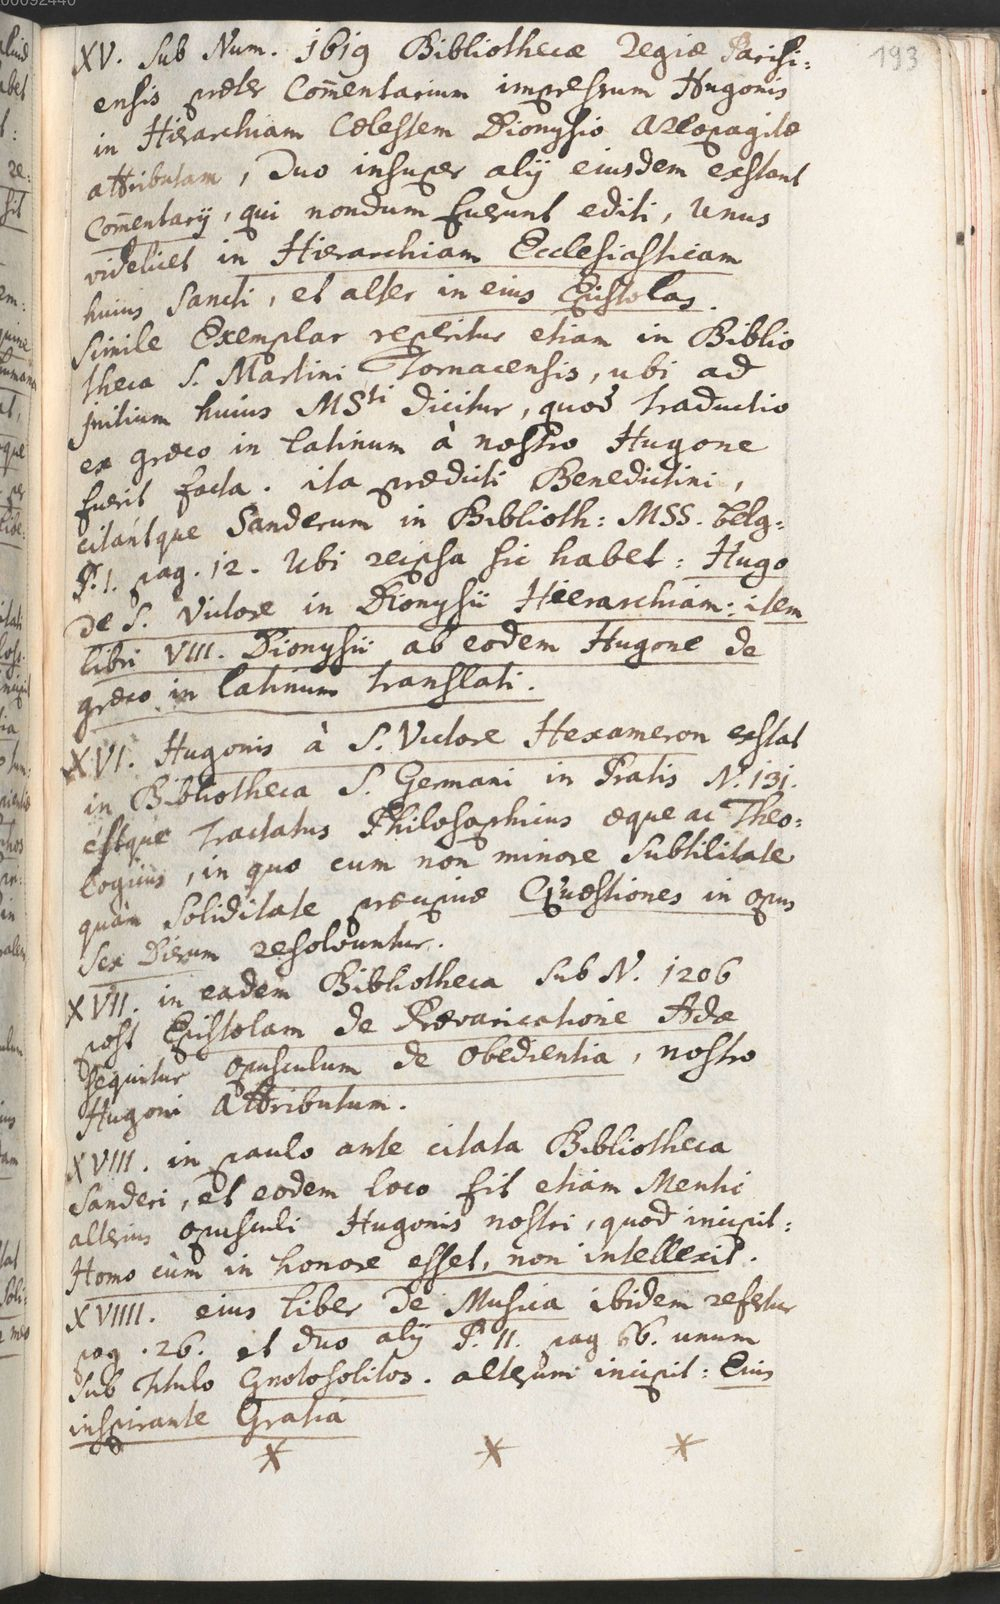 193
XV. Sub Num. 1619 Bibliothecæ Regiæ Parisi:
ensis præter Com̄entarium impressum Hugonis
in Hierarchiam Cœlestem Dionysio Areopagitæ
attributam, Duo insuper alÿ eiusdem exstant
Com̄entarÿ, qui nondum fuerunt editi, Unus
videlicet in Hierarchiam Ecclesiasticam
huius Sancti, et alter in eius Epistolas.
Simile Exemplar reperitur etiam in Biblio
theca S. Martini Tornacensis, ubi ad
initium huius MSti dicitur, quod traductio
ex græco in latinum à nostro Hugone
fuerit facta. ita prædicti Benedictini,
citántque Sanderum in Biblioth: MSS. belg:
P. 1. pag. 12. Ubi reipsa sic habet: Hugo
de S. Victore in Dionysii Hierarchiam: item
libri VIII. Dionysii ab eodem Hugone de
græco in latinum translati.
XVI. Hugonis à S. Victore Hexameron exstat
in Bibliotheca S. Germani in Pratis N. 131.
estque tractatus Philosophicus æque ac Theo:
logicus, in quo cum non minore Subtilitate
quàm Soliditate præcipuæ Quæstiones in opus
Sex Dierum resolvuntur.
XVII. in eadem Bibliotheca Sub N. 1206
post Epistolam de Prævaricatione Adæ
sequitur opusculum de obedientia, nostro
Hugoni attributum.
XVIII. in paulo ante citata Bibliotheca
Sanderi, et eodem loco fit etiam Mentio
alterius opusculi Hugonis nostri, quod incipit:
Homo cùm in honore esset, non intellexit.
XVIIII. eius liber de Musica ibidem refertur
pag. 26. et duo alÿ P. 11. pag 66. unum
sub titulo Gnotosolitos. alterum incipit: Eius
inspirante Gratiâ